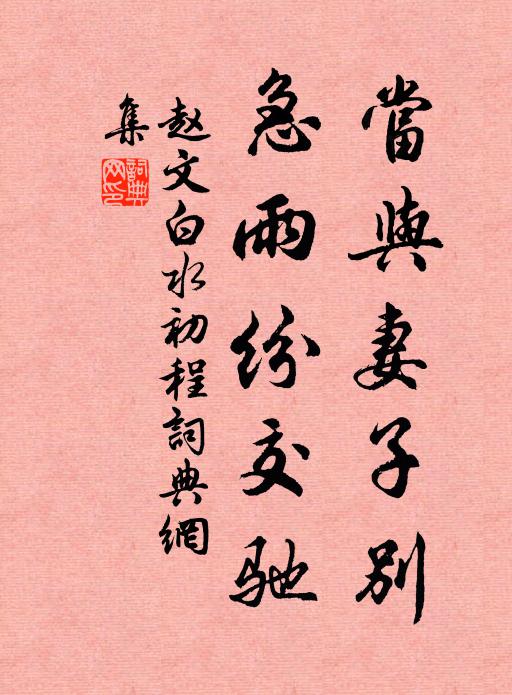 當與妻子別
急雨紛交馳
赵文白水初程詞典網
集
詞典
网印